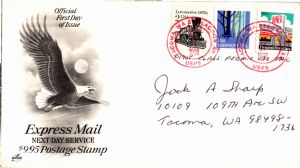 Official
First Day
of Issue
Locomotive 1870s
TACOMA, WA
USPS
USPS
FIRST CLASS
Jack A Sharp
10109 109TH AVE SW
Tacoma, WA 98498-
1736
Express Mail
NEXT DAY SERVICE
$9.95 Postage Stamp